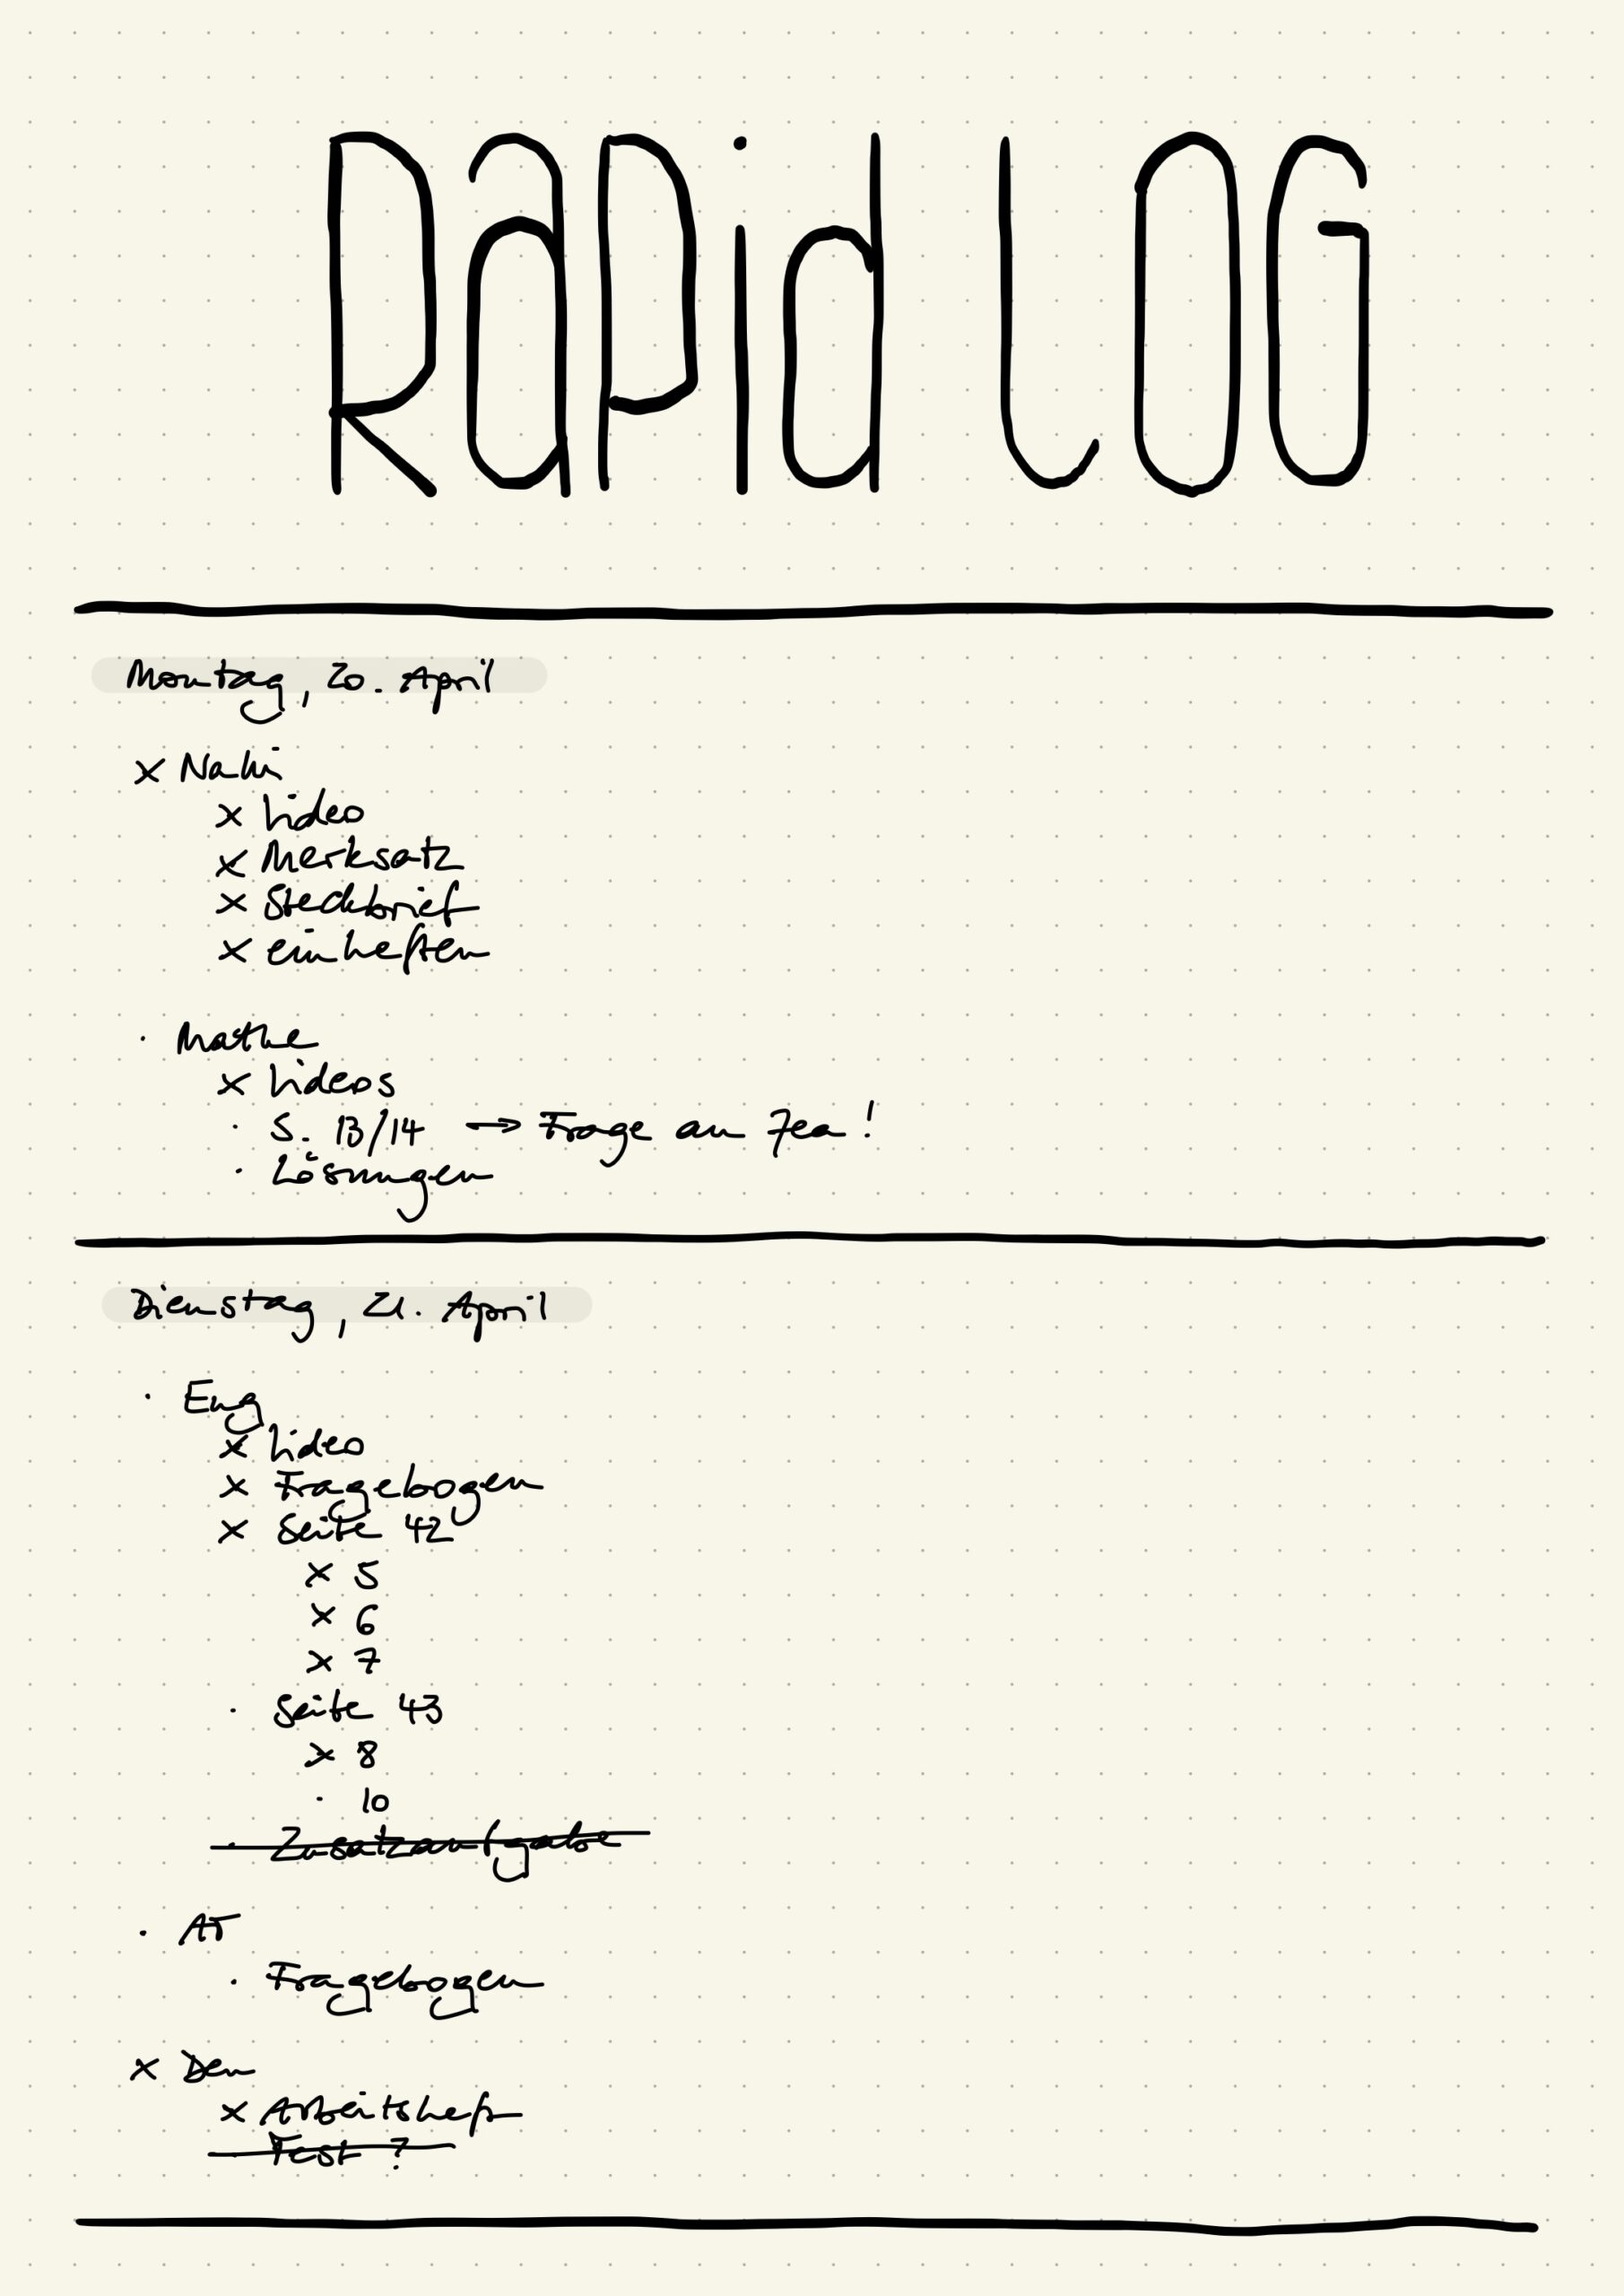 RaPid LOG
Montag, 20. April
x Nawi
x Video
x Merksatz
x Steckbrief
x einheften
· Mathe
x Videos
· S. 13/14 → Frage an Fea!
· Lösungen
Dienstag, 21. April
· Eng
x Video
x Fragebogen
x Seite 42
x 5
x 6
x 7
· Seite 43
x 8
· 10
· Zusatzaufgabe
· AT
· Fragebogen
x Deu
x Arbeitsheft
· Test?